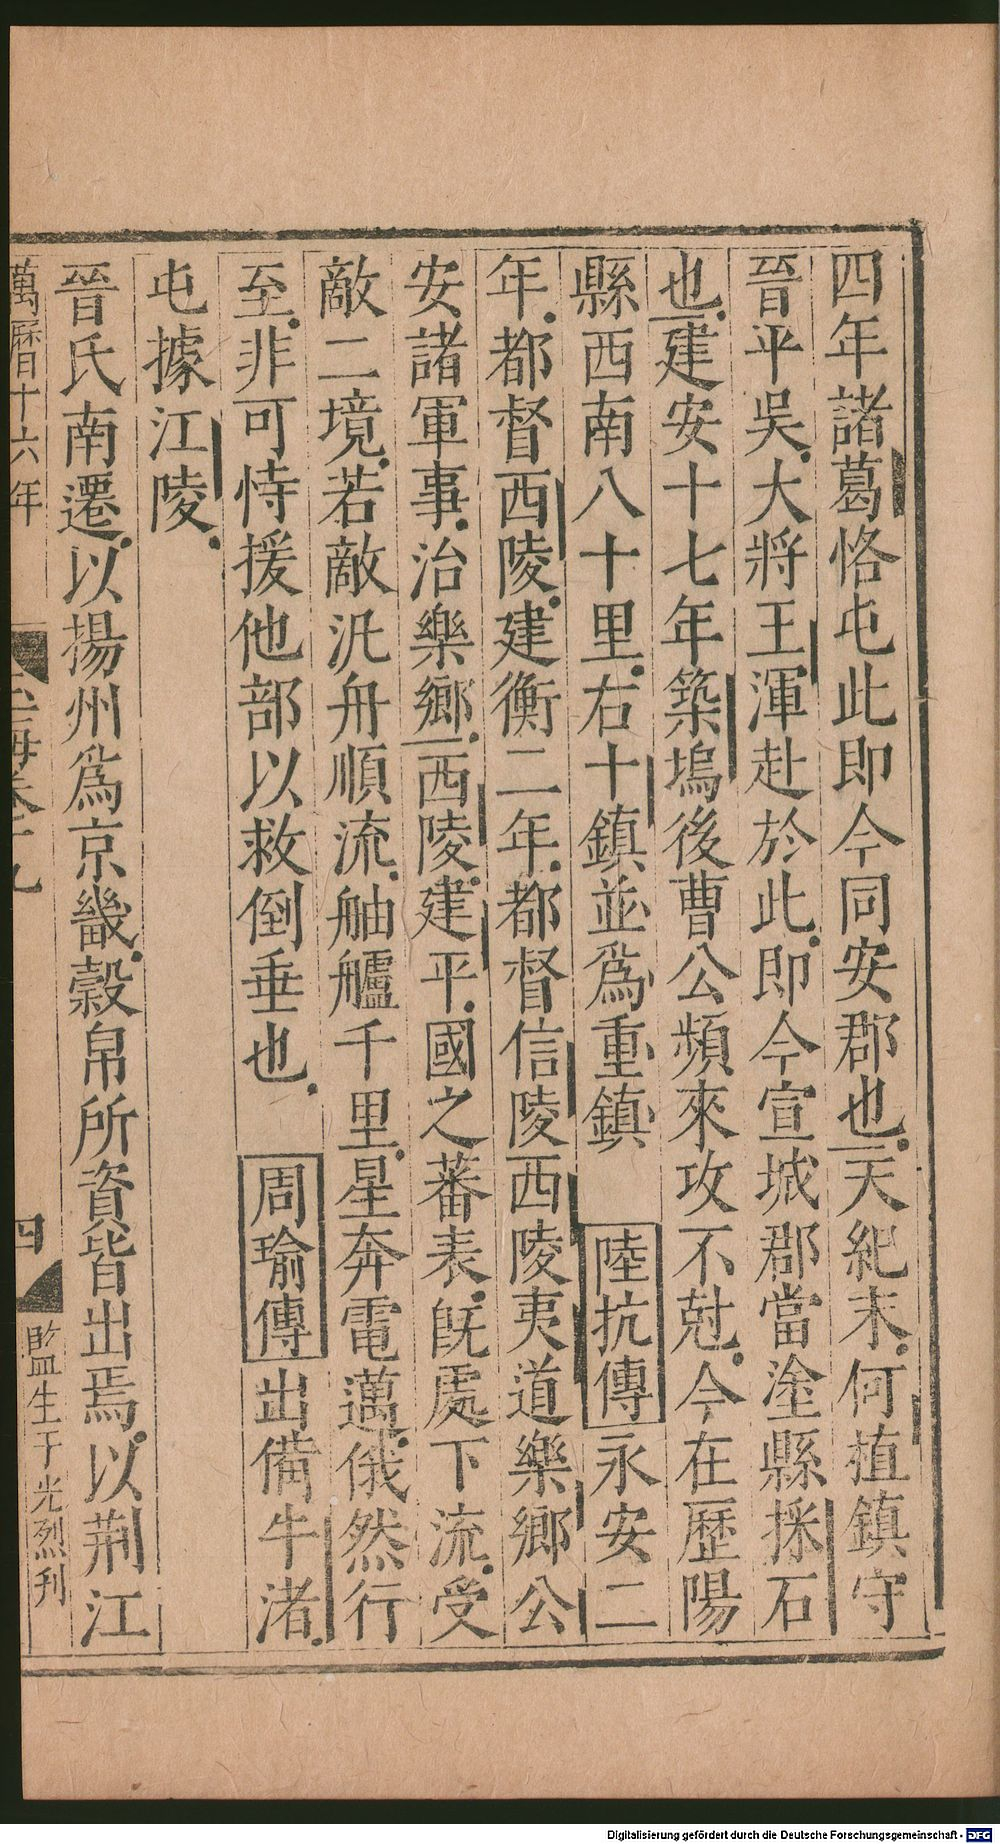 四年諸葛恪屯此即今同安郡也天紀末何植鎮守
晉平吳大將王渾赴於此即今宣城郡當塗縣採石
也建安十七年築塢後曹公頻來攻不尅今在歷陽
縣西南八十里右十鎮並爲重鎮 陸抗傳永安二
年都督西陵建衡二年都督信陵西陵夷道樂鄉公
安諸軍事治樂鄉西陵建平國之蕃表旣處下流受
敵二境若敵汎舟順流舳艫千里星奔電邁俄然行
至非可恃援他部以救倒垂也 周瑜傳出備牛渚
屯據江陵
晉氏南遷以揚州爲京畿穀帛所資皆出焉以荆江
萬曆十六年
四
監生于光烈刊
Digitalisierung gefördert durch die Deutsche Forschungsgemeinschaft - DFG